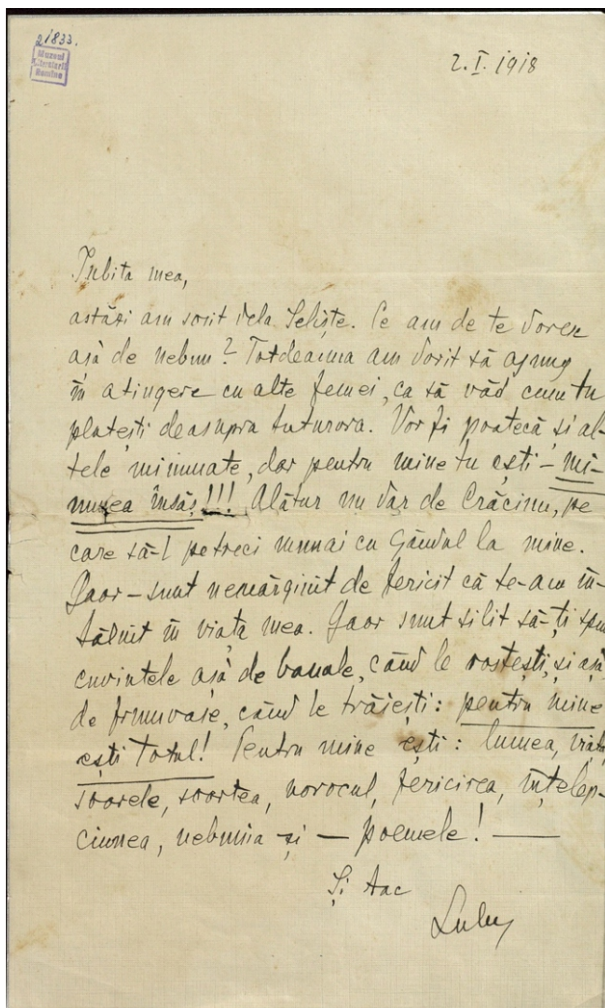 21833.
Muzeul
Literaturii
Române
2.I.1918
Iubita mea,
astăzi am sosit dela Seliște. Ce am de te doresc
așà de nebun? Totdeauna am dorit să ajung
în atingere cu alte femei, ca să văd cum tu
plutești deasupra tuturora. Vor fi poatecă și al-
tele minunate, dar pentru mine tu ești – mi-
nunea însăș!!! Alătur un dar de Crăciun, pe
care să-l petreci numai cu gândul la mine.
– sunt nemărginit de fericit că te-am în-
tâlnit în viața mea. sunt silit să-ți spun
cuvintele așà de banale, când le rostești, și așà
de frumoase, când le trăiești: pentru mine
ești totul! Pentru mine ești: lumea, viața
soarele, soartea, norocul, fericirea, înțelep-
ciunea, nebunia și — poemele! —
Și tac